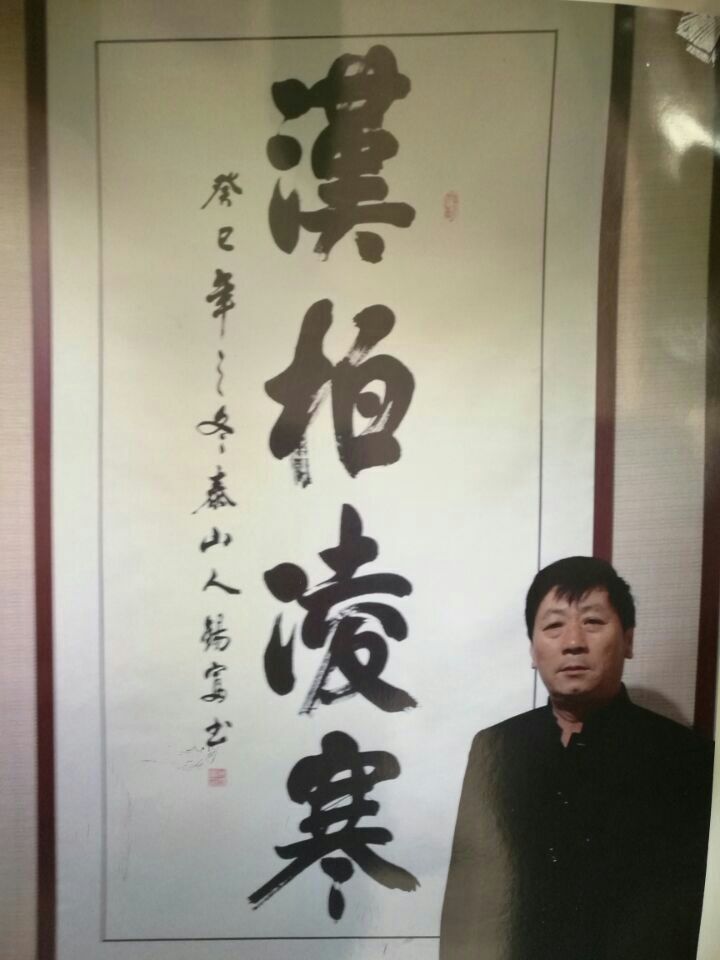 漢柏凌寒
癸巳年之冬泰山人錫寅书